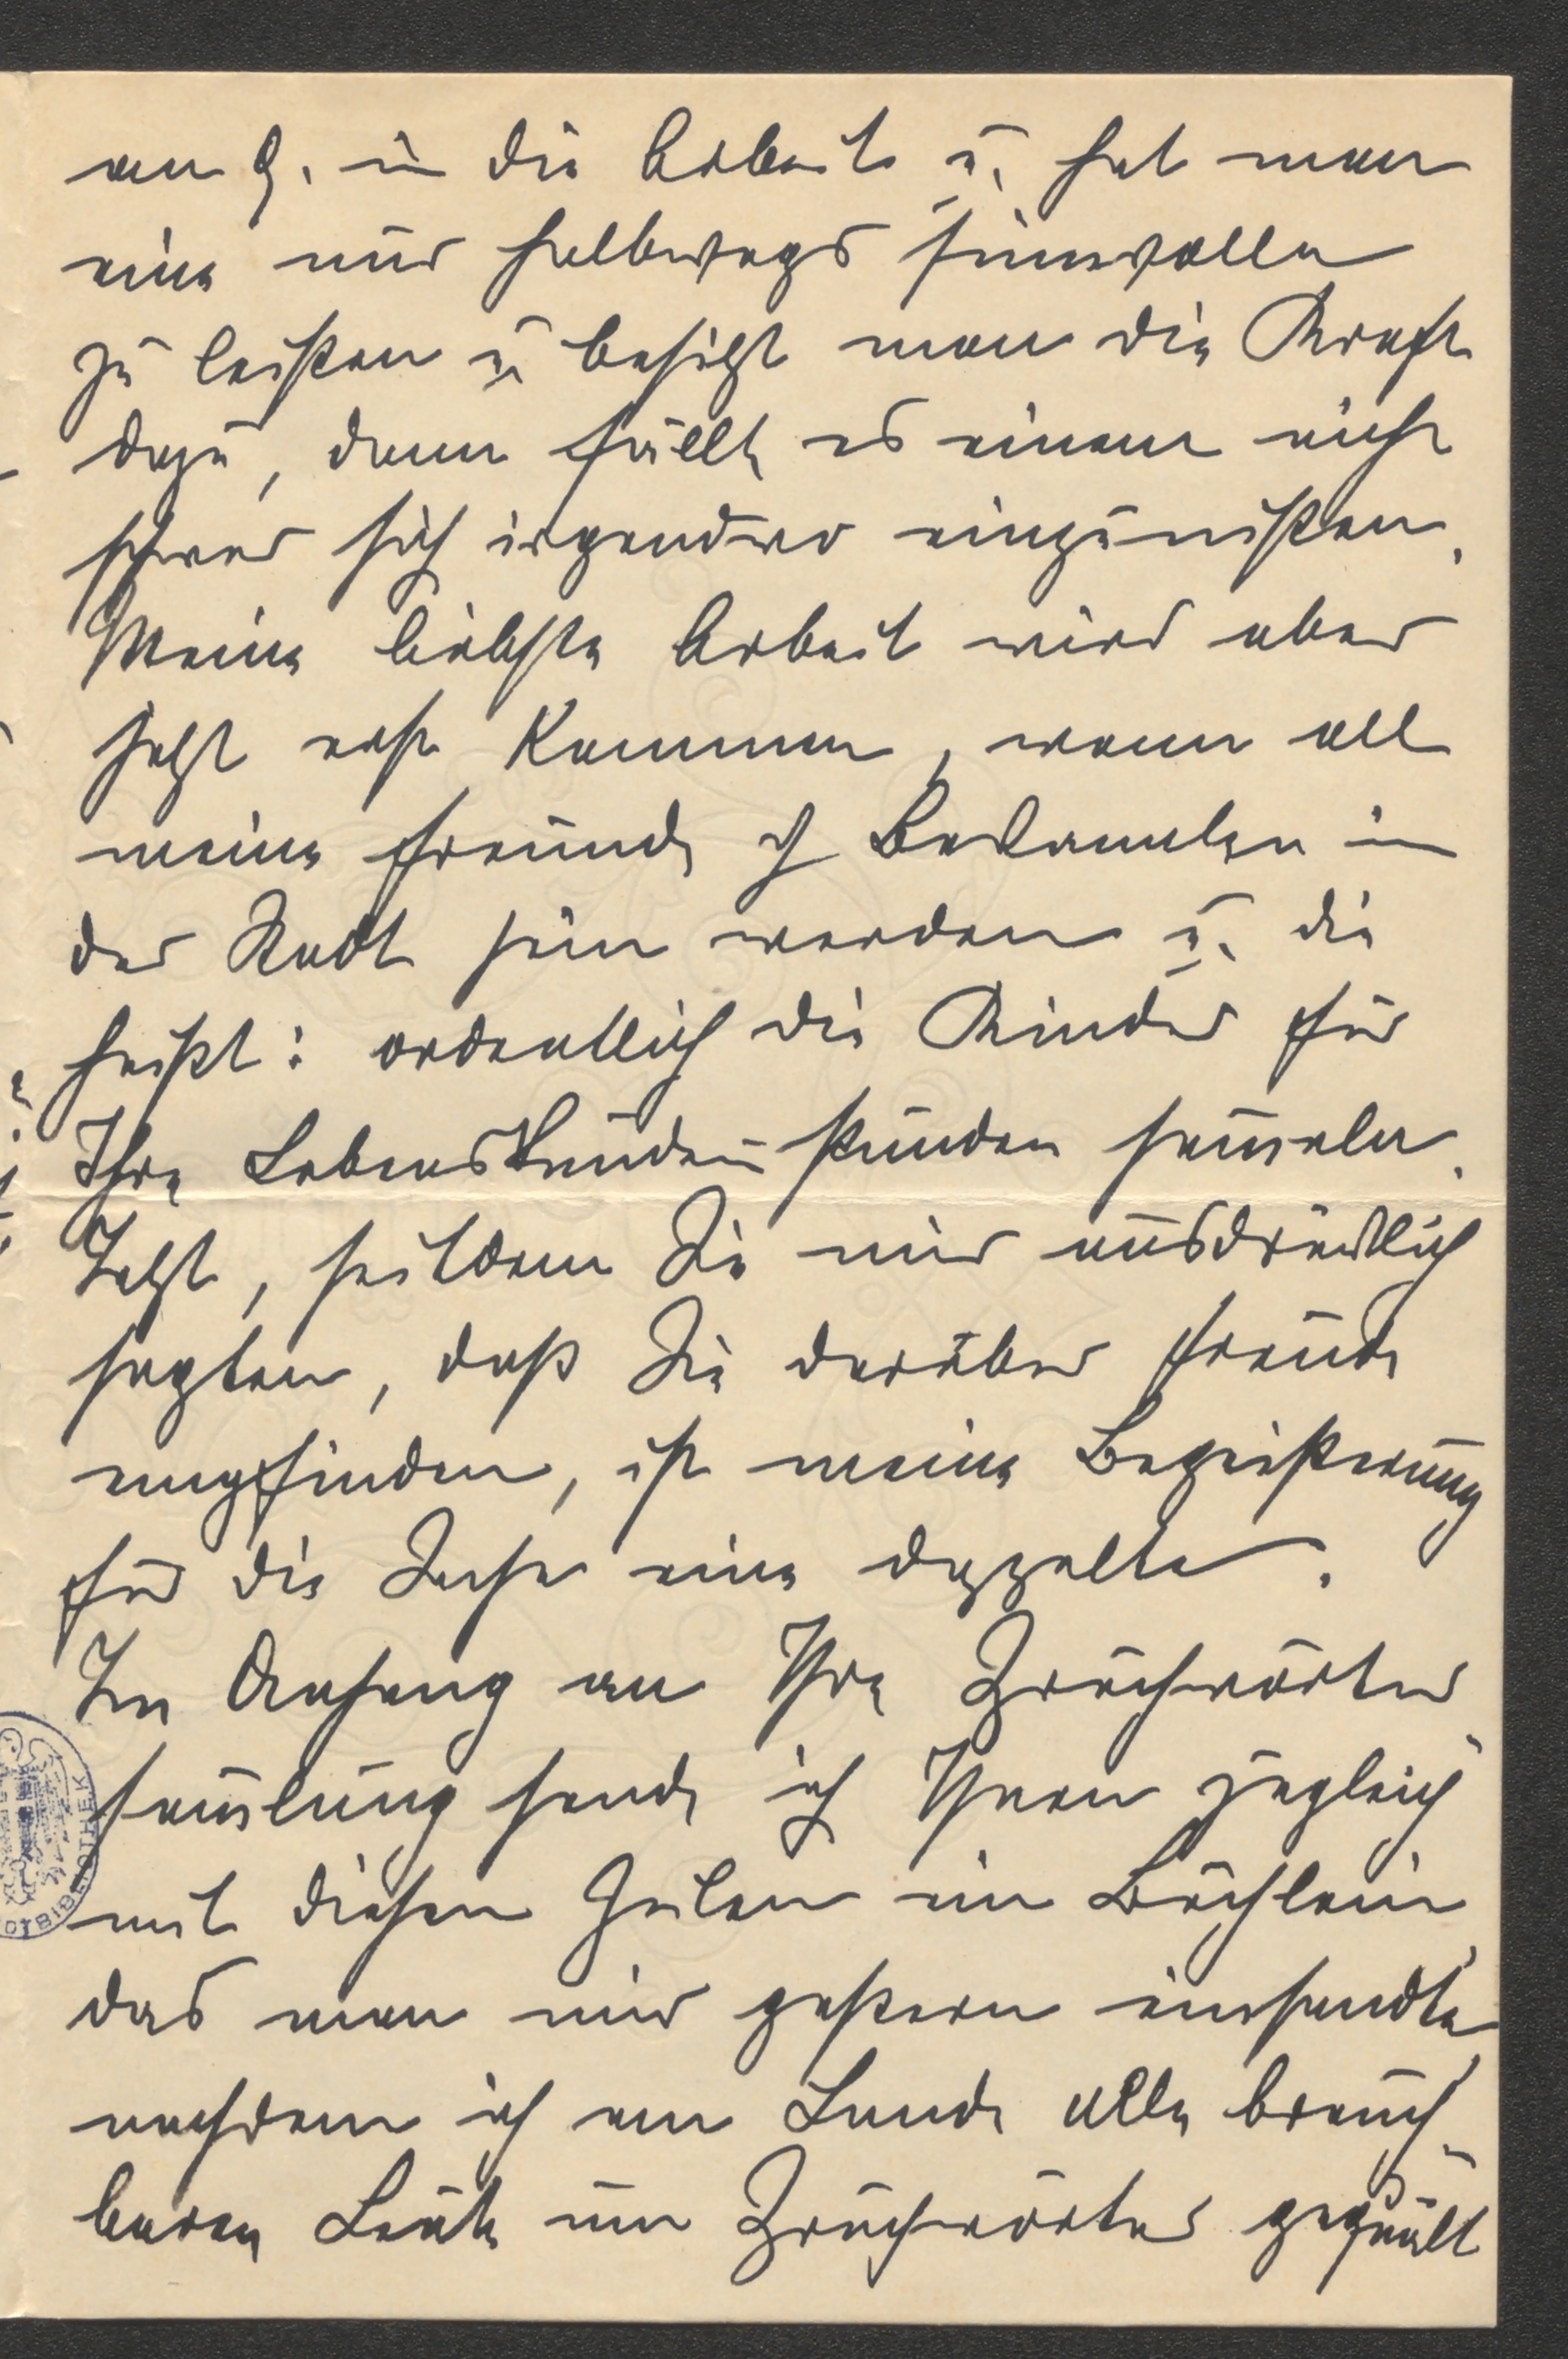 an G. in die Arbeit u. hat man
eine nur halbwegs sinnvolle
zu leisten u. besitzt man die Kraft
dazu, dann fällt es einem nicht
schwer sich irgendwo einzunisten.
Meine liebste Arbeit wird aber
jetzt erst kommen, wenn all
meine Freunde & Bekannten in
der Stadt sein werden u. die
heißt: ordentlich die Kinder für
Ihre Lebenskundenstunden sam̄eln.
Jetzt, seitdem Sie mir ausdrücklich
sagten, daß Sie darüber Freude
empfinden, ist meine Begeisterung
für die Sache eine doppelte.
Im Anhang an Ihre Sprüchwörter-
sam̄lung sende ich Ihnen zugleich
mit diesen Zeilen ein Büchlein,
das man mir gestern einsandte,
nachdem ich am Lande alle brauch-
baren Leute um Sprüchwörter gequält